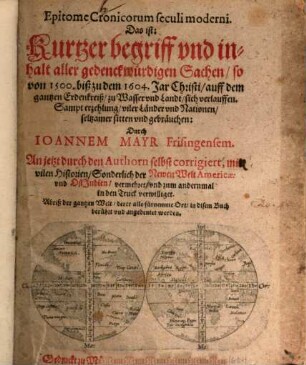 Epitome Cronicorum seculi moderni.
Das ist:
Kurtzer begriff vnd in-
halt aller gedenckwürdigen Sachen/ so
von 1500. biß zu dem 1604. Jar Christi/ auff dem
gantzen Erdenkreiß/ zu Wasser vnd Landt/ sich verlauffen.
Sampt erzehlung/ viler Länder vnd Nationen/
seltzamer sitten vnd gebräuchen:
Durch
IOANNEM MAYR Frisingensem.
An jetzt durch den Authorn selbst corrigiert, mit
vilen Historien/ Sonderlich der Newen Welt America/
vnd Ost Indien/ vermehret/ vnd zum andernmal
in den Truck verwilliget.
Abriß der gantzen Welt/ derer alle fürnemme Ort/ in disem Buch
berührt vnd angedeutet werden.
Gedruckt zu